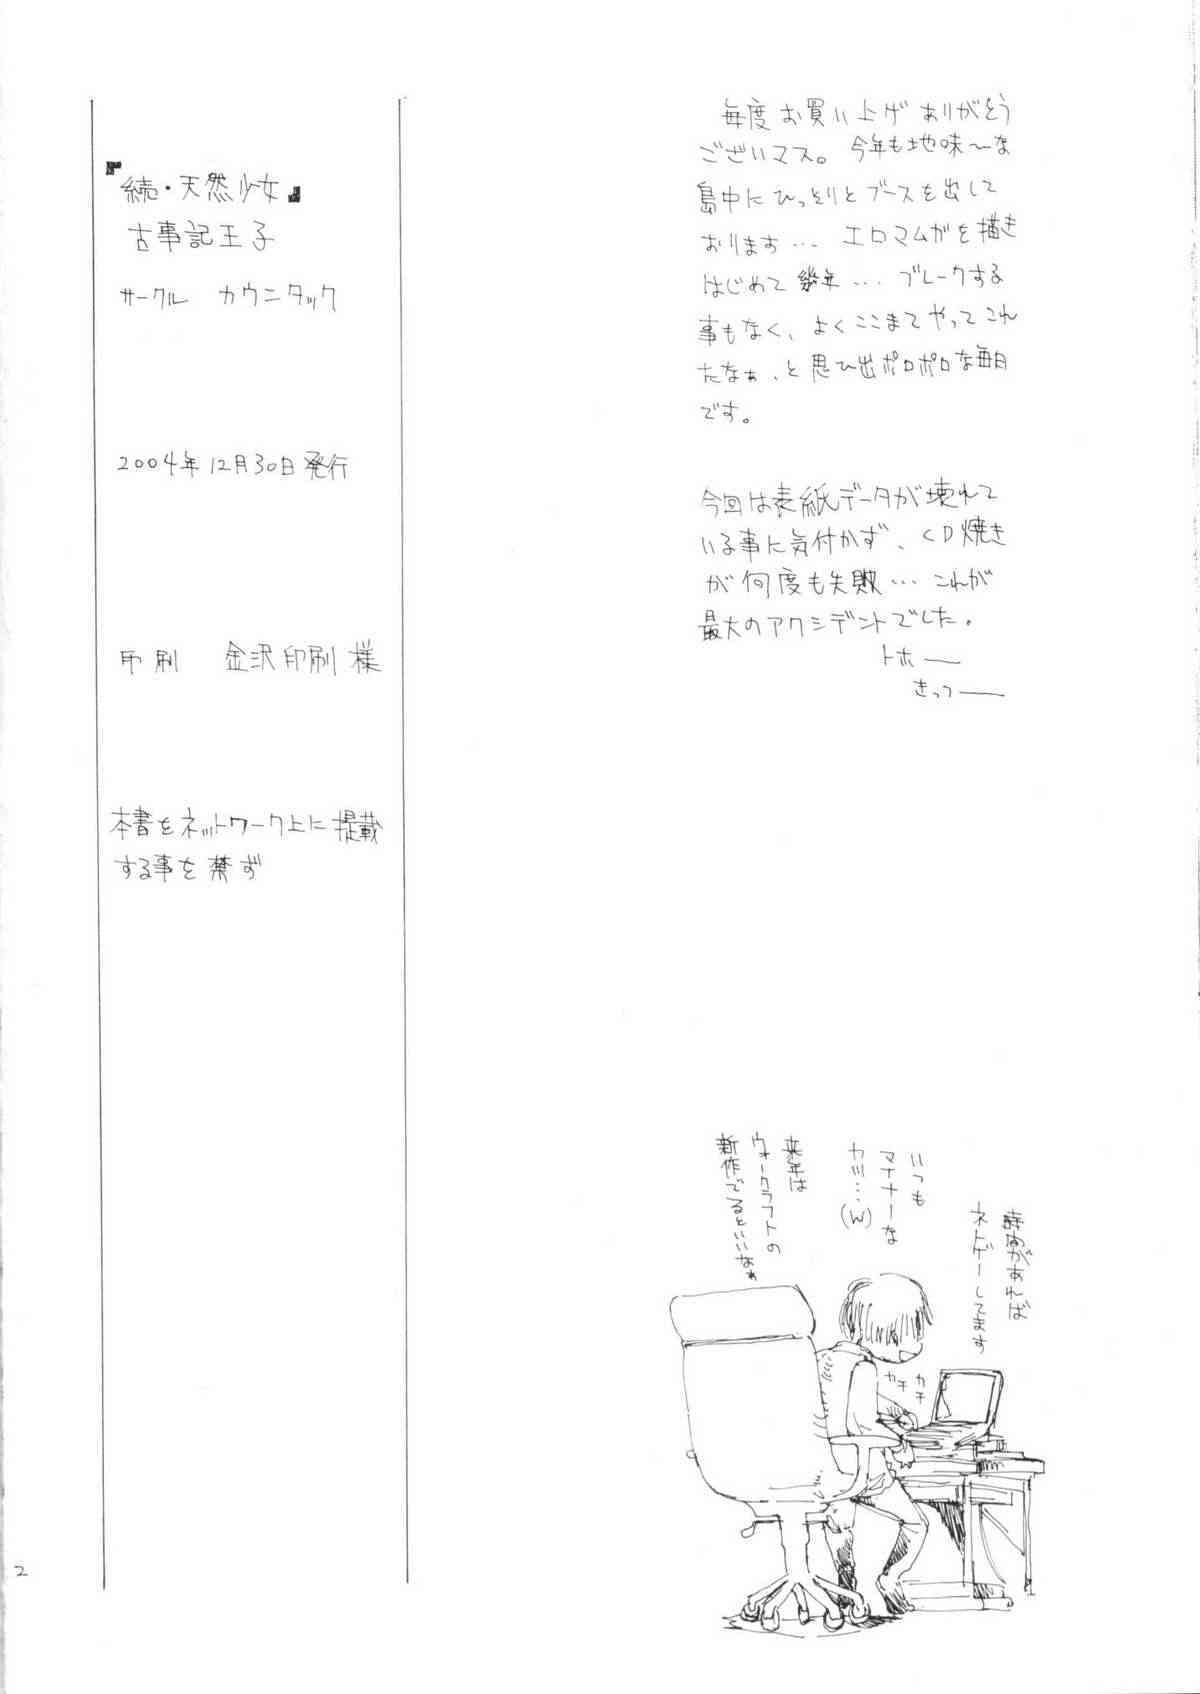 『続・天然少女』
古事記王子
サークル　カウニタック
2004年12月30日発行
印刷　金沢印刷様
本書をネットワーク上に掲載
する事を禁ず
毎度お買い上げありがとう
ございマス。今年も地味〜な
島中にひっそりとブースを出して
おります… エロマムガを描き
はじめて幾年… ブレークする
事もなく、よくここまでやってこれ
たなぁ、と思ひ出ポロポロな毎日
です。
今回は表紙データが壊れて
いる事に気付かず、CD焼き
が何度も失敗… これが
最大のアクシデントでした。
トホー
きっつー
時間があれば
ネトゲーしてます
いつも
マナナーな
カミ…(W)
来年は
ウォークラフトの
新作でるといいなぁ
カチ
カチ
2